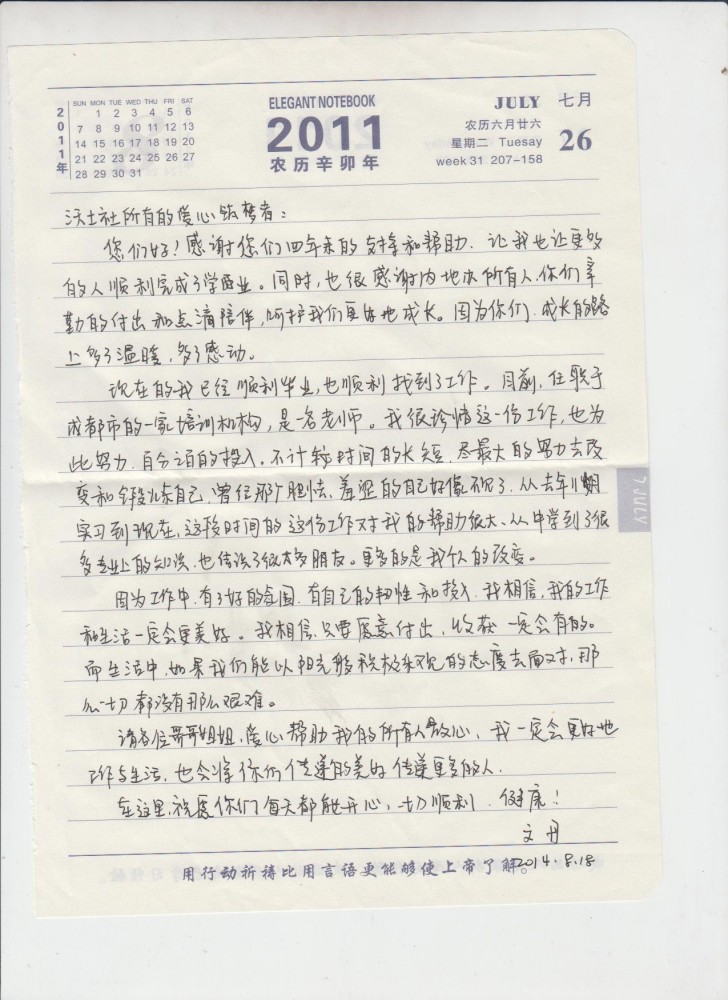 2011年
SUN MON TUE WED THU FRI SAT
1 2 3 4 5 6
7 8 9 10 11 12 13
14 15 16 17 18 19 20
21 22 23 24 25 26 27
28 29 30 31
ELEGANT NOTEBOOK
2011
农历辛卯年
JULY 七月
农历六月廿六
星期二 Tuesay
week 31 207-158
26
沃土社所有的爱心筑梦者:
您们好!感谢您们四年来的支持和帮助,让我也让更多
的人顺利完成了学业。同时,也很感谢内地办所有人,你们辛
勤的付出和点滴陪伴,呵护我们更好地成长。因为你们,成长的路
上多了温暖,多了感动。
现在的我已经顺利毕业,也顺利找到了工作。目前,任职于
成都市的一家培训机构,是一名老师。我很珍惜这一份工作,也为
此努力,百分之百的投入,不计较时间的长短,尽最大的努力去改
变和锻炼自己,曾经那个胆怯、羞涩的自己好像不见了,从去年11月
实习到现在,这段时间的这份工作对我的帮助很大,从中学到了很
多专业上的知识,也结识了很多朋友。更多的是我个人的改变。
因为工作中,有了好的氛围,有自己的韧性和投入,我相信,我的工作
和生活一定会更美好。我相信,只要愿意付出,收获一定会有的。
而生活中,如果我们能以阳光积极乐观的态度去面对,那
么一切都没有那么艰难。
请各位哥哥姐姐,爱心帮助我的所有人放心,我一定会更好地
工作与生活,也会将你们传递的美好传递更多的人。
在这里,祝愿你们每天都能开心,一切顺利,健康!
文丹
2014.8.18
用行动祈祷比用言语更能够使上帝了解。
7 JULY